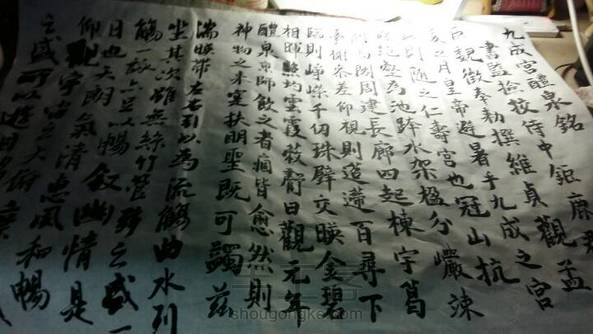 九成宮醴泉銘
書監檢校侍中鉅鹿郡
臣魏徵奉勅撰維貞觀孟
夏之月皇帝避暑乎九成之宮
則随之仁壽宮也冠山抗
絕壑為池跨水架楹分巖竦
闕周建長廊四起棟宇葛
臺榭參差仰視則迢遰百尋下
臨則崢嶸千仞珠璧交暎金碧
相暉照灼雲霞蔽虧日觀元年
醴泉京師飲之者痼皆愈然則
神物之来寔扶明聖既可蠲茲
湍暎帶左右引以為流觴曲水列
坐其次雖無絲竹管弦之盛一
觴一詠亦足以暢叙幽情是
日也天朗氣清惠風和暢
仰觀宇宙之大俯察
之盛可以遊目
shougongke.com